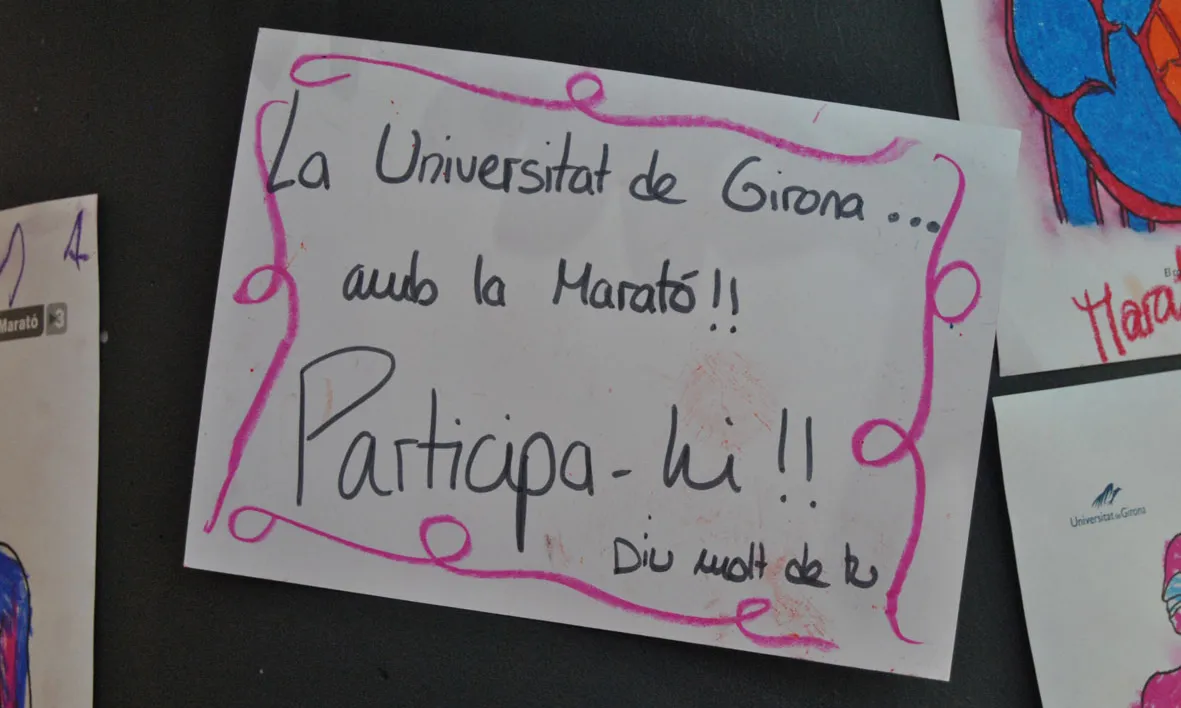 La Universitat de Girona ...
amb la Marató!!
Participa-hi!!
Diu molt de tu
Marató 3
Universitat de Girona